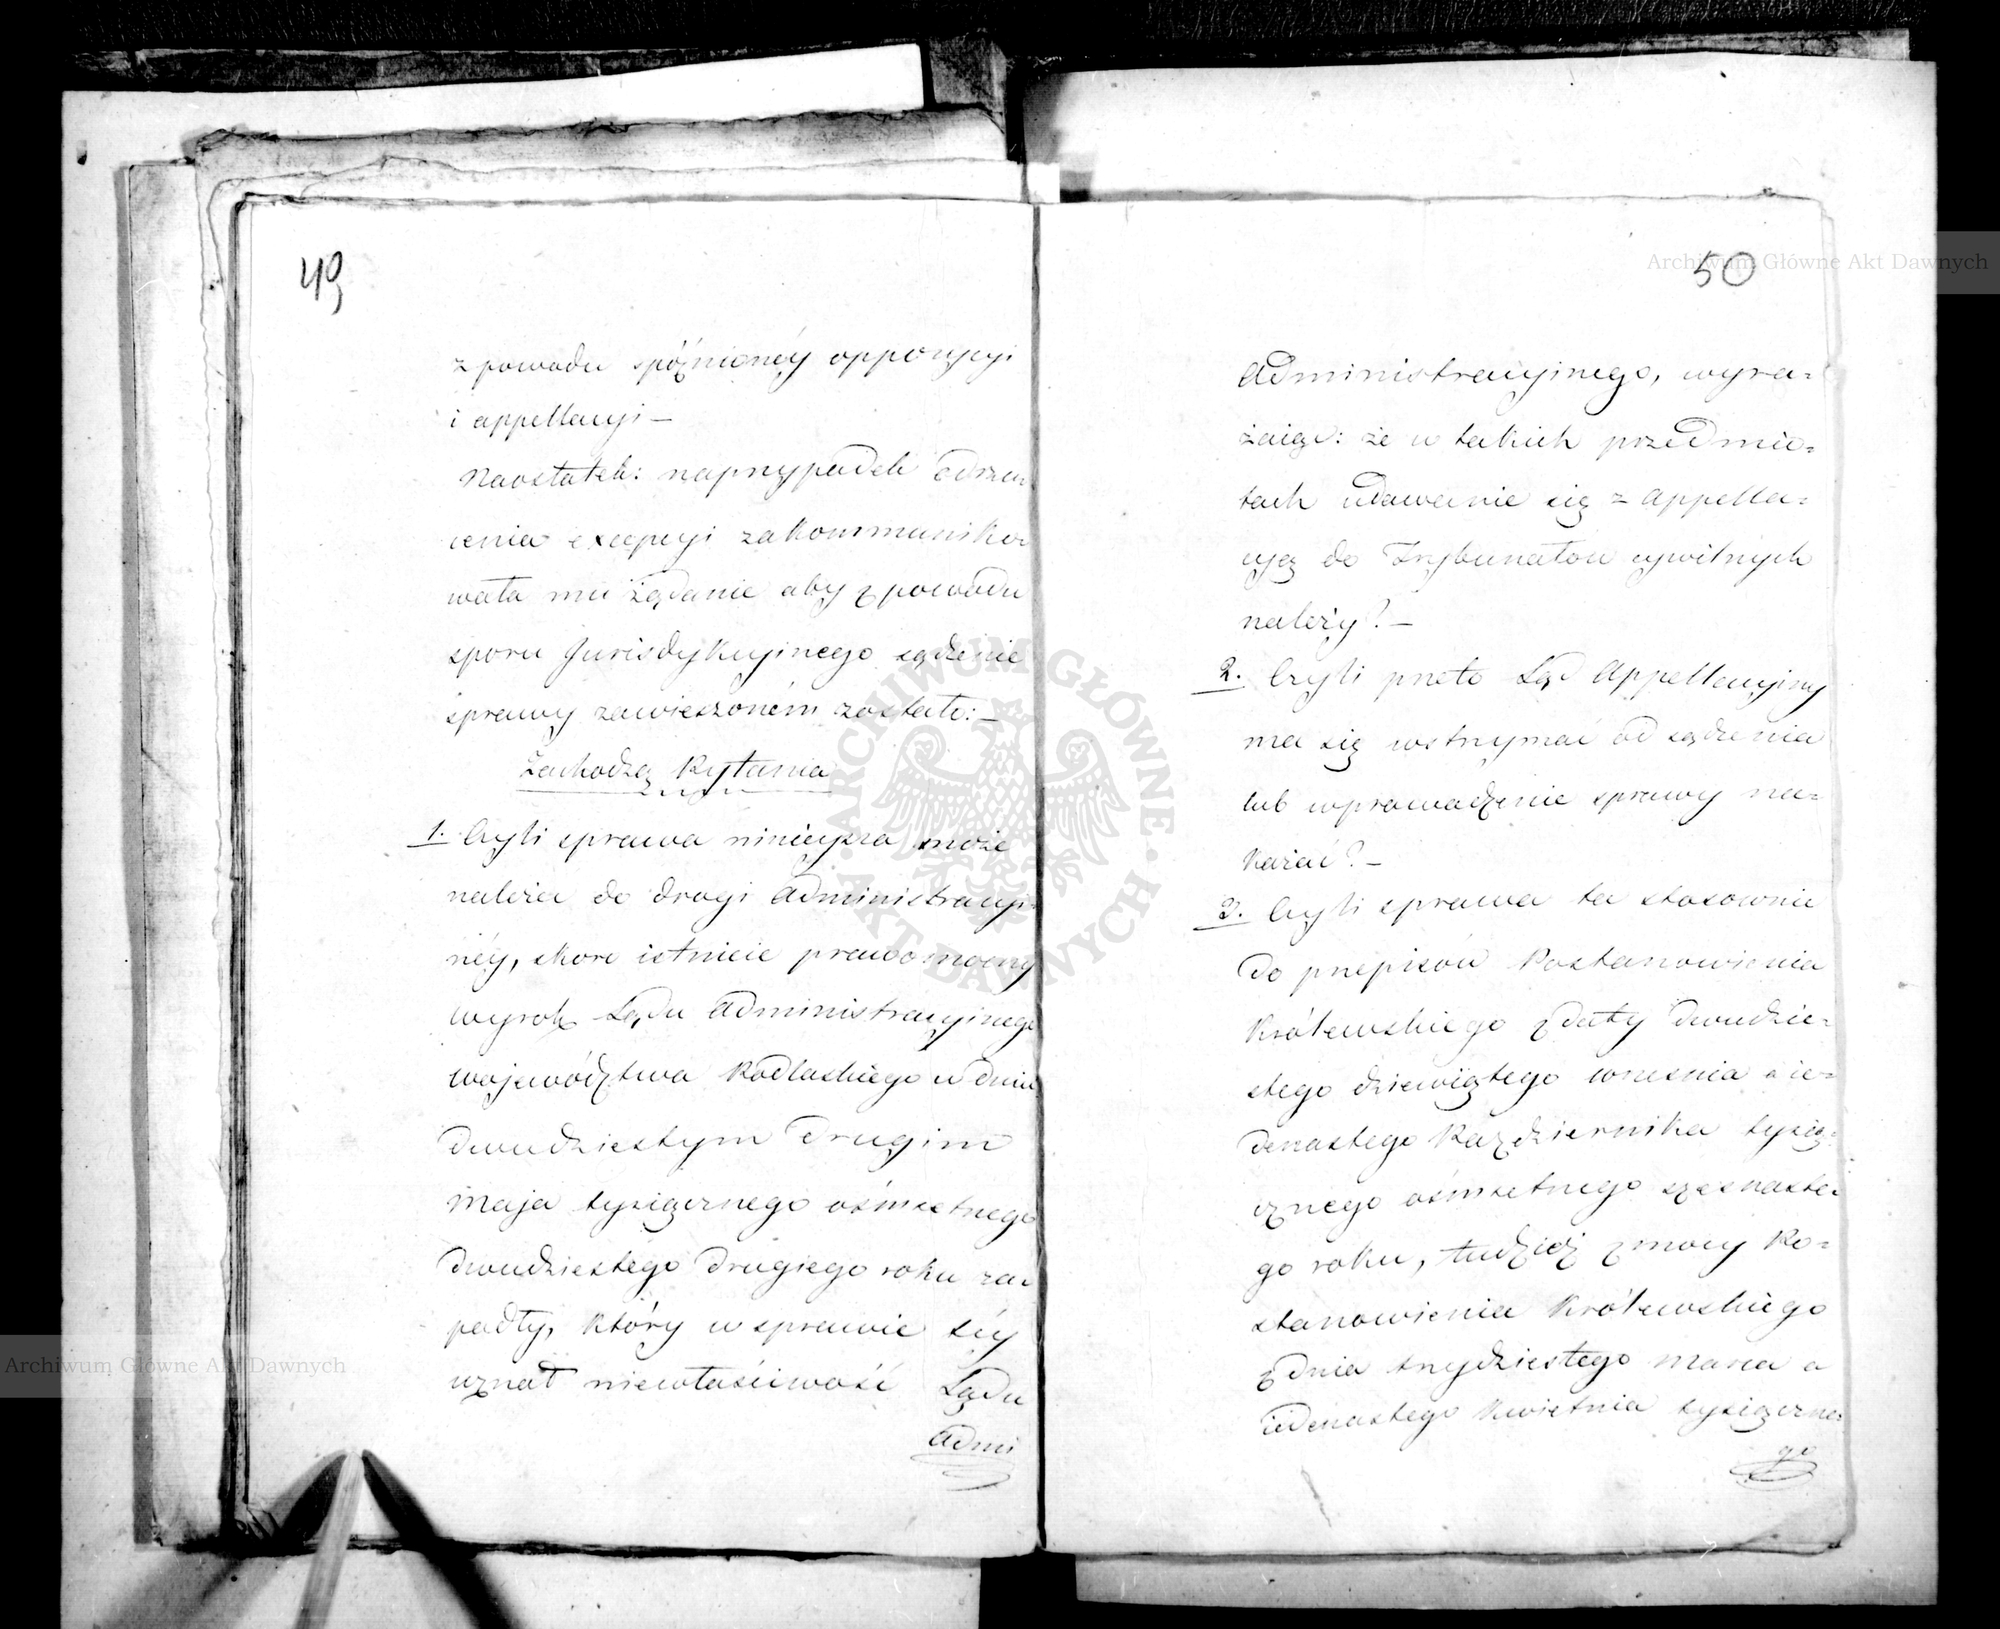 49
z powodu spóźnionéy oppozycyi
i appellacyi —
Naostatek: naprzypadek odrzu-
cenia excepcyi zakommuniko
wała mu żądanie aby z powodu
sporu Jurisdykcyinego sądzenie
sprawy zawieszoném zostało: —
Zachodzą Pytania
1. Czyli sprawa ninieysza może
należeć do drogi administracyi-
néy, skoro istnieie prawomocny
wyrok Sądu Administracyinego
Województwa Podlaskiego w dniu
dwudziestym drugim
Maja tysiącznego ośmsetnego
dwudziestego drugiego roku za-
padły, który w sprawie téy
uznał niewłaściwość Sądu
Admi
50
Administracyinego, wyra-
żaiąc: że w takich przedmio-
tach udawanie się z appella-
cyą do Trybunałów cywilnych
należy? —
2. Czyli przeto Sąd Appellacyiny
ma się wstrzymać od sądzenia
lub wprowadzenie sprawy na-
kazać? —
3. Czyli sprawa ta stosownie
do przepisów Postanowienia
Królewskiego z daty dwudzie-
stego dziewiątego września a ie-
denastego Października tysią-
cznego ośmsetnego szesnaste-
go roku, tudzież z mocy Po-
stanowienia Królewskiego
z dnia trzydziestego marca a
iedenastego Kwietnia tysiączne-
go
Archiwum Główne Akt Dawnych
Archiwum Główne Akt Dawnych
ARCHIWUM GŁÓWNE · AKT DAWNYCH ·